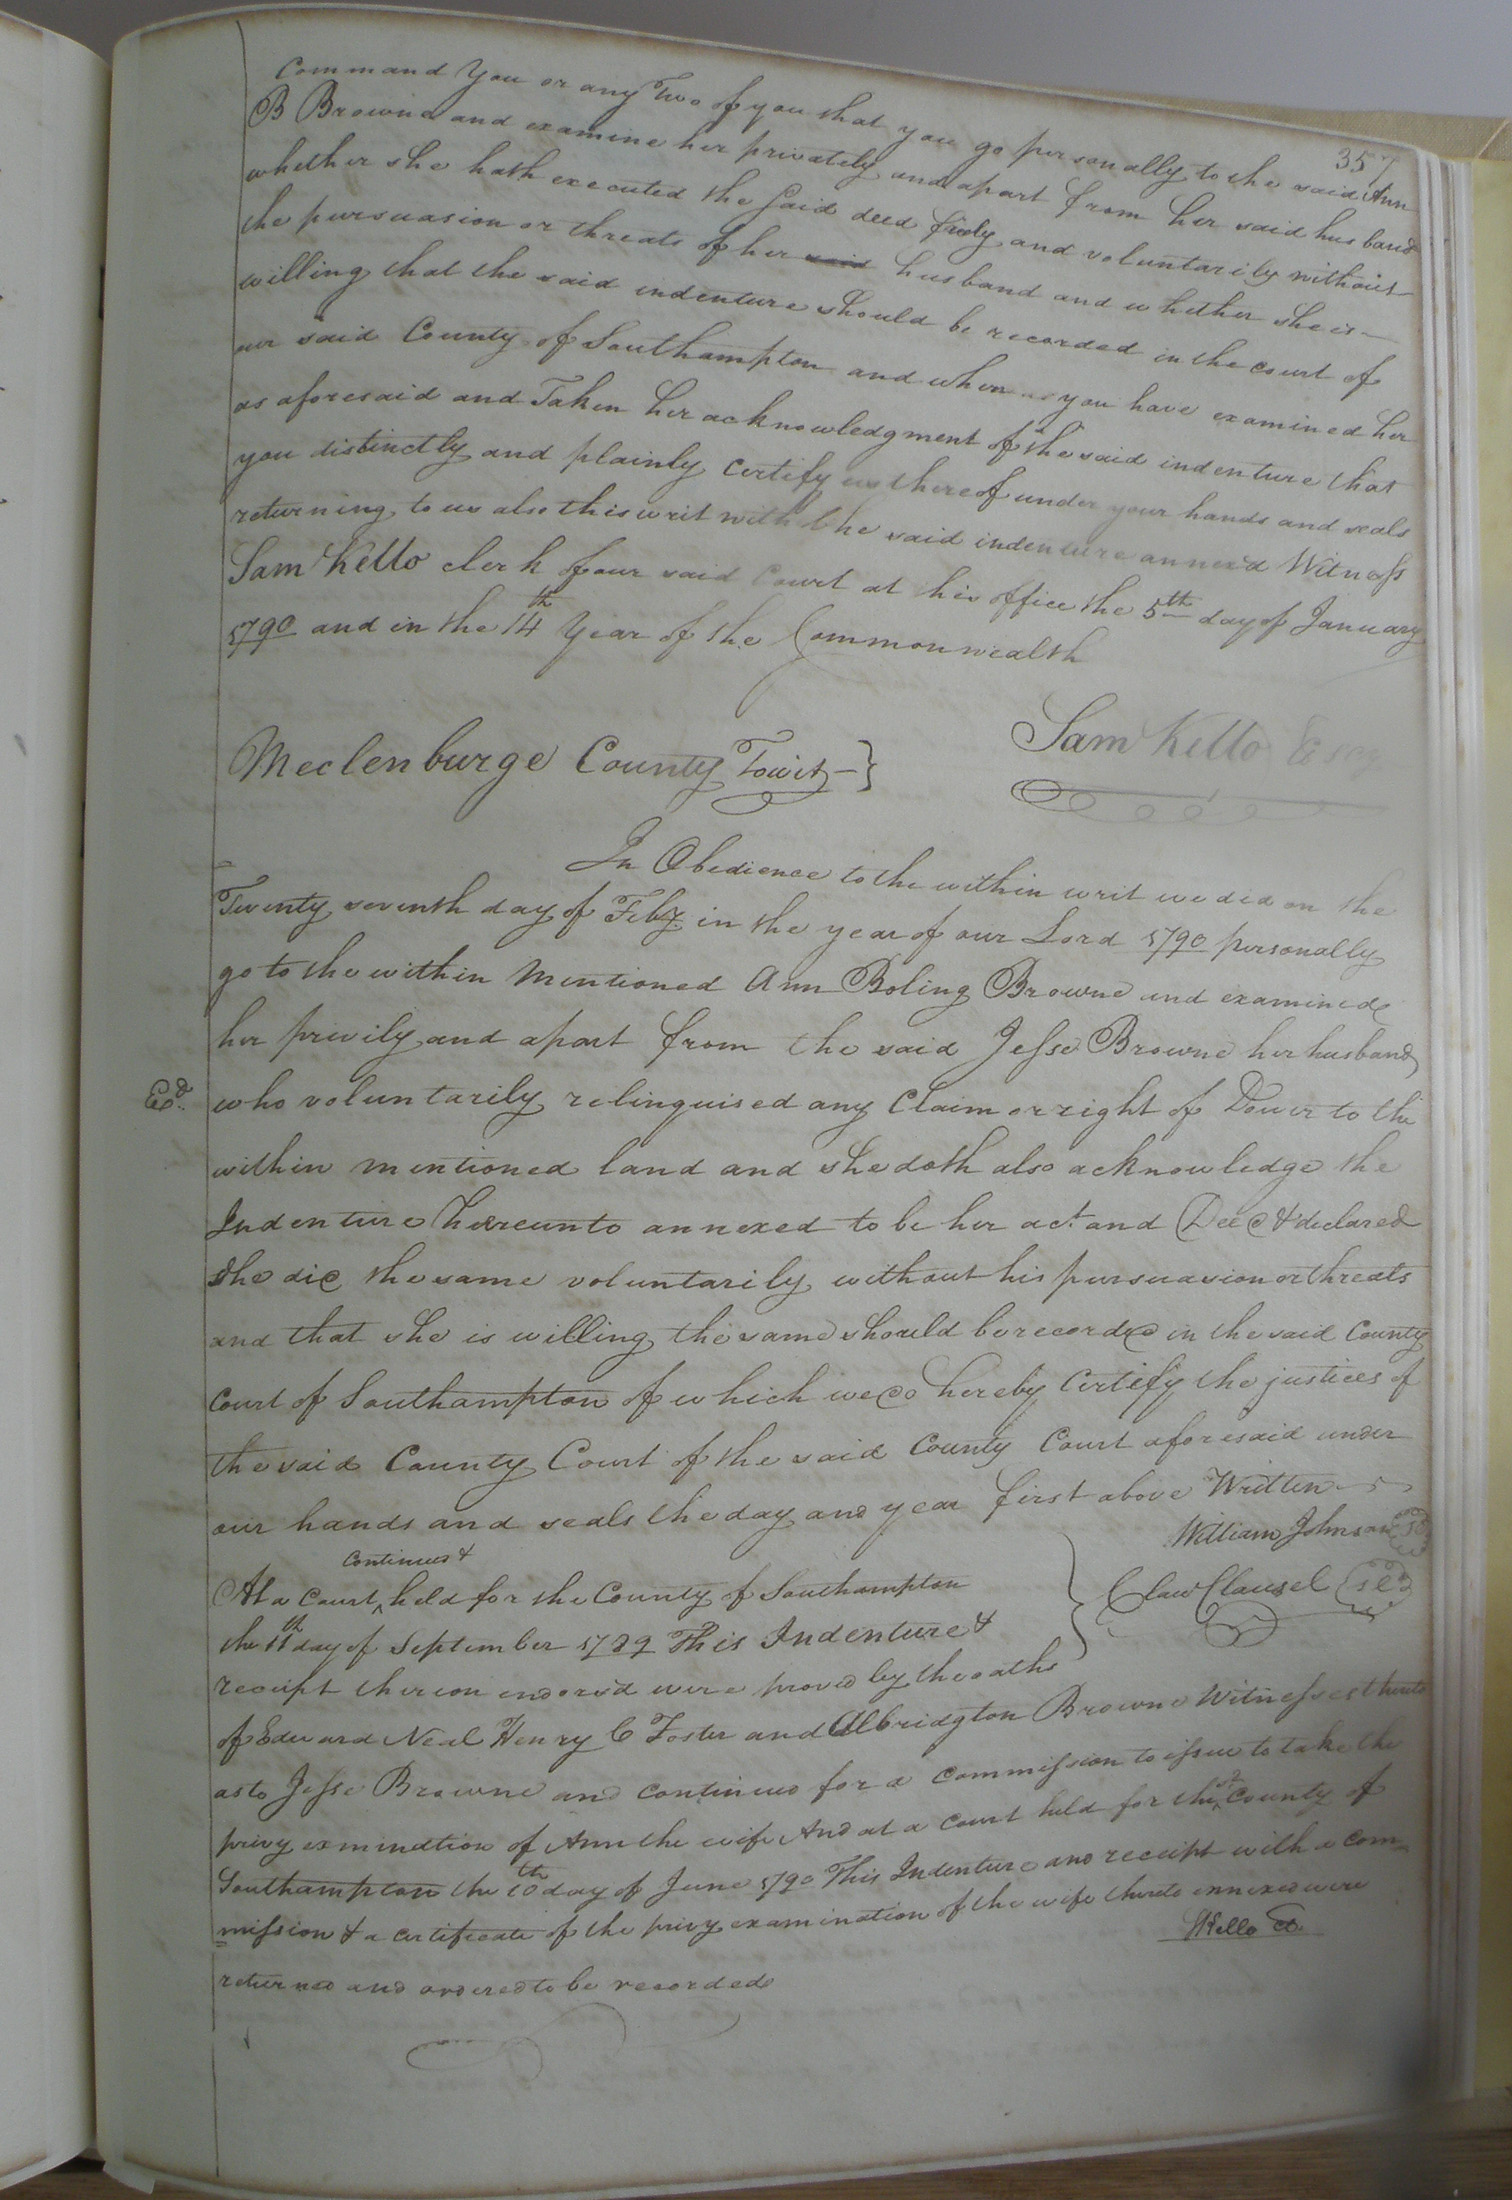 357
Command You or any Two of you that you go personally to the said Ann
B Browne and examine her privately and apart from her said husband
whether she hath executed the said deed freely and voluntarily without
the pursuasion or threats of her said husband and whether she is
willing that the said indenture should be recorded in the court of
our said County of Southampton and when you have examined her
as aforesaid and Taken her acknowledgment of the said indenture that
you distinctly and plainly Certify us thereof under your hands and seals
returning to us also this writ with the said indenture annexd Witness
Sam Kello clerk of our said Court at his office the 5th day of January
1790 and in the 14th Year of the Commonwealth
Sam Kello
Meclenburge County Towit
In Obedience to the within writ we did on the
Twenty seventh day of Feby in the year of our Lord 1790 personally
go to the within Mentioned Ann Boling Browne and examined
her privily and apart from the said Jesse Browne her husband
Exd. who voluntarily relinguised any Claim or right of Dower to the
within mentioned land and she doth also acknowledge the
Indenture hereunto annexed to be her act and Deed & declared
she did the same voluntarily without his pursuasion or threats
and that she is willing the same should be recorded in the said County
Court of Southampton of which we do hereby Certify the justices of
the said County Court of the said County Court aforesaid under
our hands and seals the day and year first above Written
William Johnson
Claw Clausel
Continued &
At a Court held for the County of Southampton
the 11th day of September 1789 This Indenture &
receipt thereon endorsd were proved by the oaths
of Edward Neal Henry C Foster and Albridgton Browne Witnesses thereto
as to Jesse Browne and continued for a commission to issue to take the
privy exmindtion of Ann the wife And at a court held for the County of
Southampton the 10th day of June 1790 This Indenture and receipt with a com=
mission & a certificate of the privy examination of the wife thereto annexed were
returned and ordered to be recorded
SKello